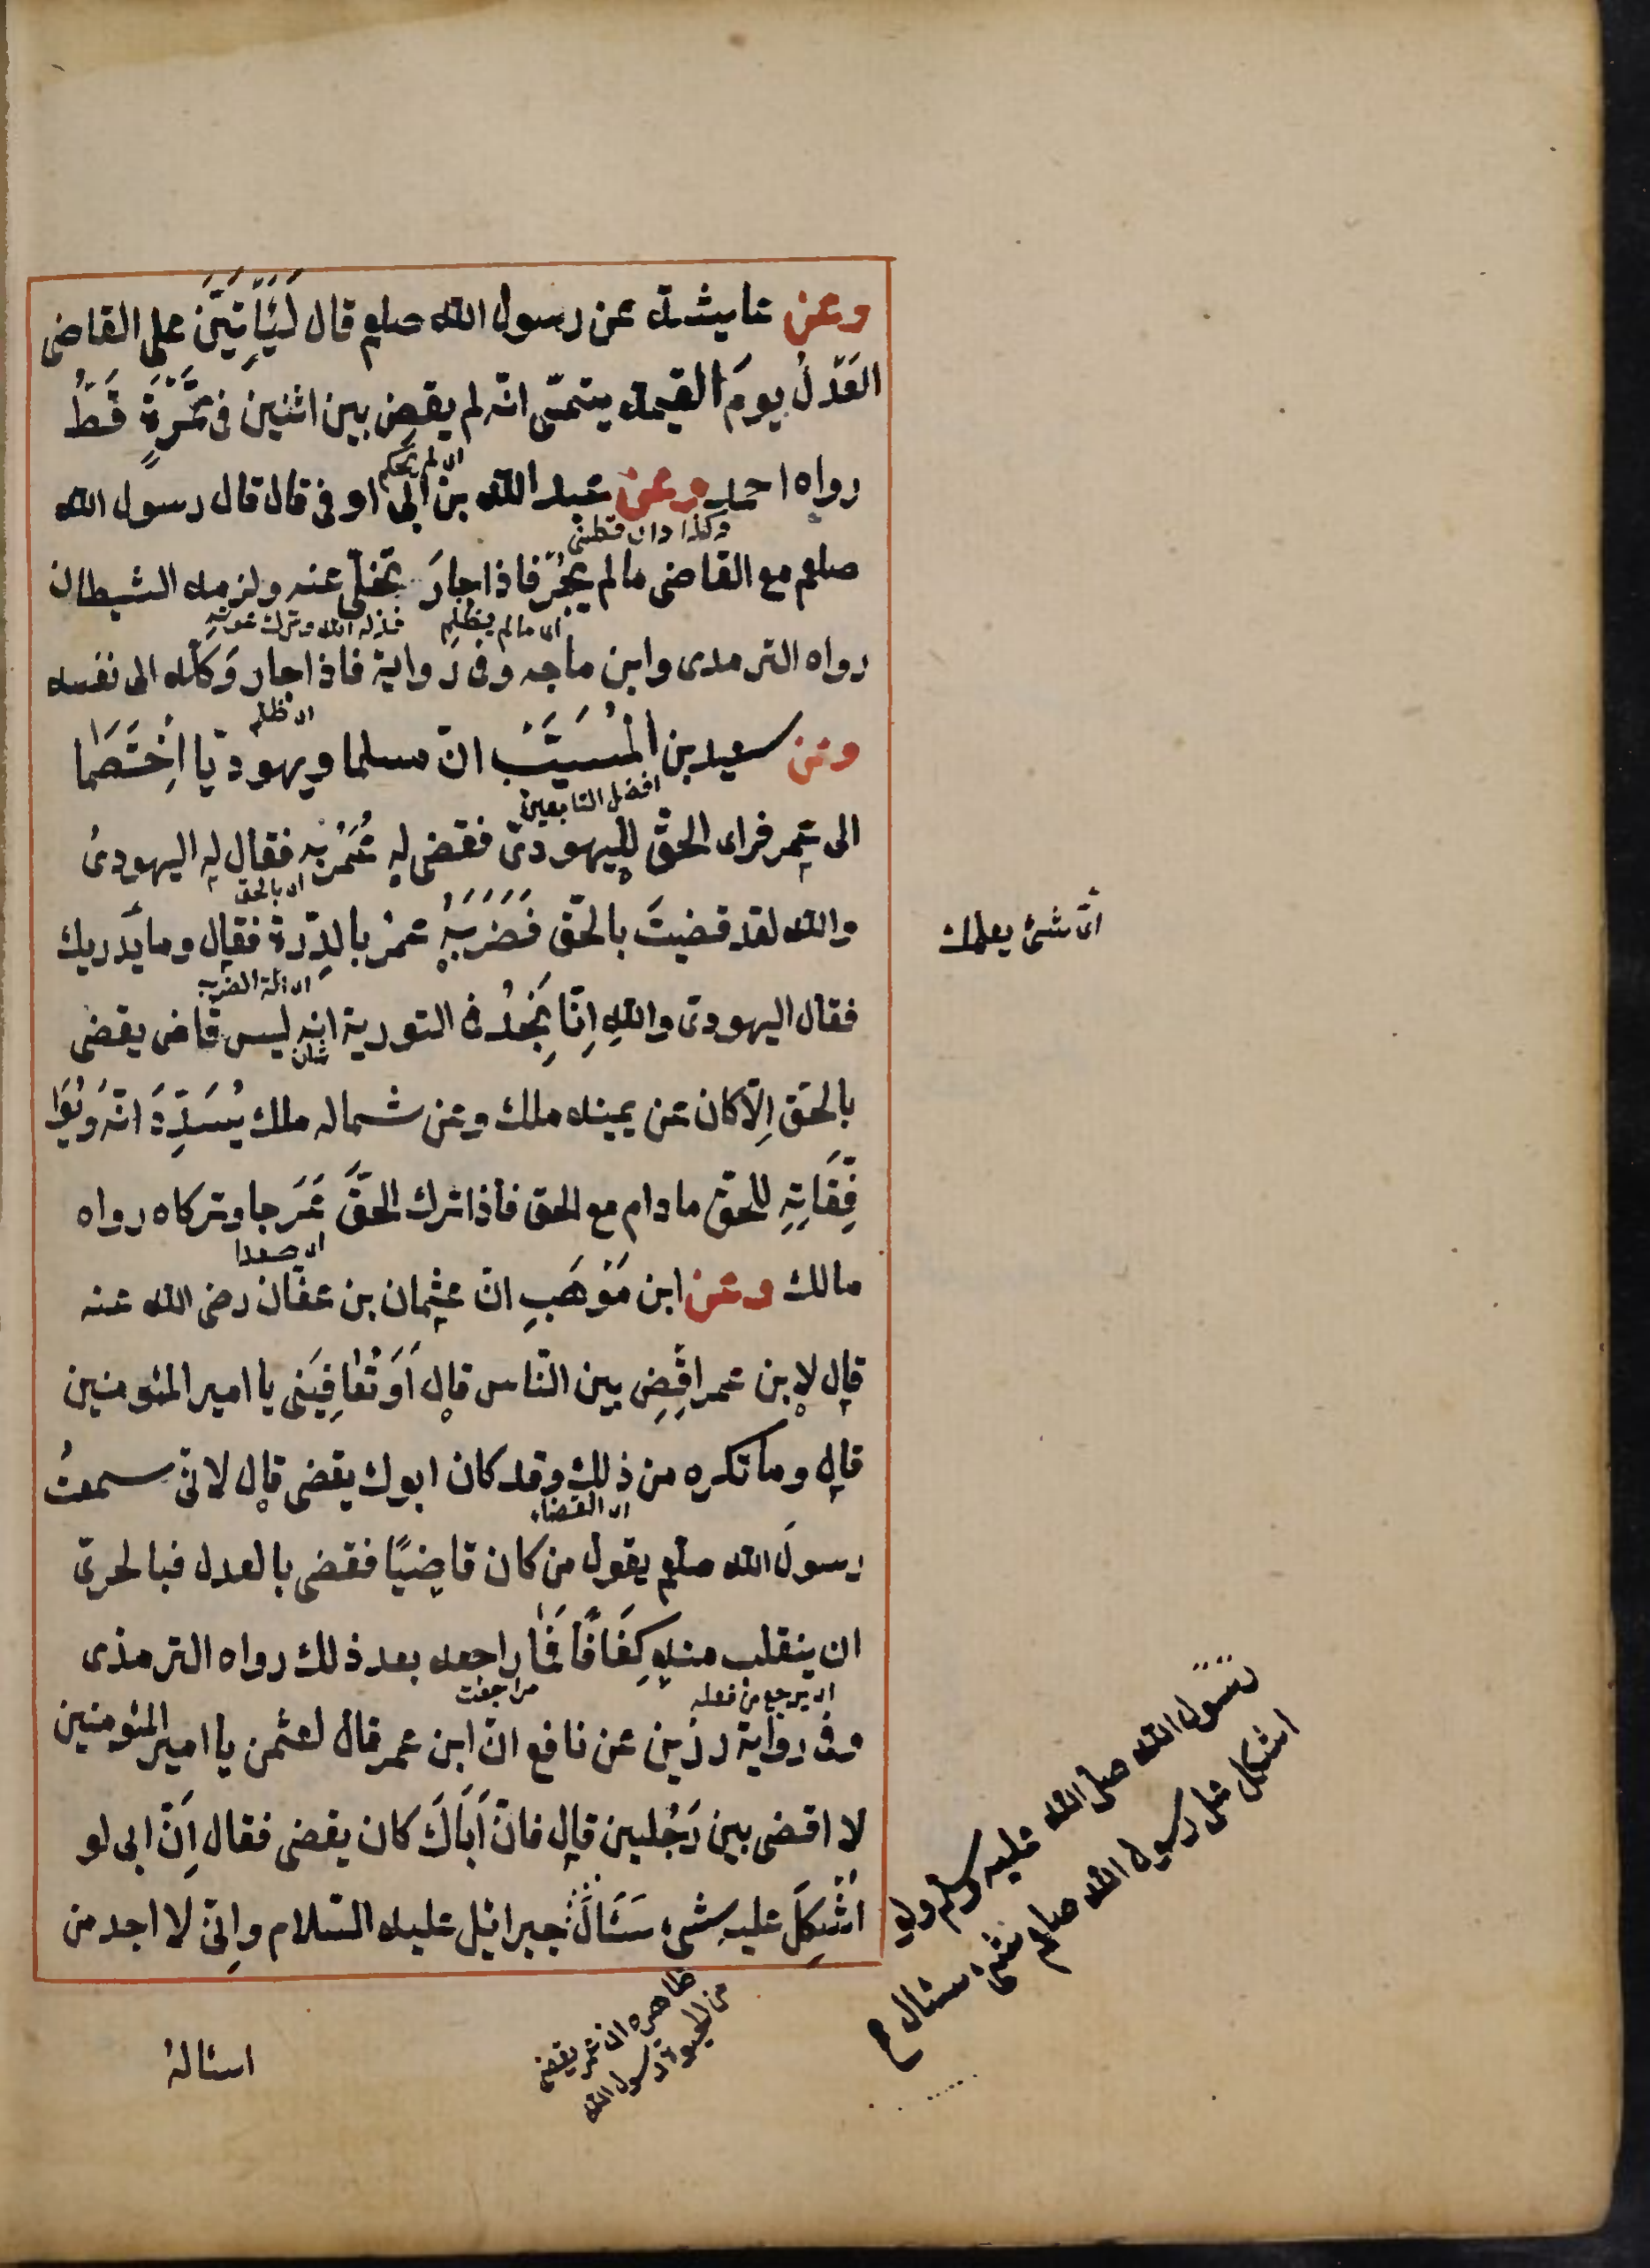 وعن عايشة عن رسول الله صلعم قال لَيَأتِيَنَّ على القاضى
العَدْلُ يومَ القيمة يتمنّى انّه لم يقضِ بين اثنين فى تَمْرَةٍ قَطُّ
اى لم يحكم
رواه احمد وعن عبد الله بن ابى اوفى قال قال رسول الله
وكذا دار قطنى
صلعم مع القاضى مالم يَجُرْ فاذا جارَ تخلّى عنه ولزمه الشيطان
اى مالم يظلم
خذله الله وترك عونه
رواه الترمدى وابن ماجه وفى رواية فاذا جار وَكَلَه الى نفسه
اى ظلم
وعن سعيد بن المُسَيَّب انّ مسلما ويهوديّا اِخْتَصَما
افضل التابعين
الى عمر فراى الحقّ لليهودىّ فقضى له عُمَرُ به فقال له اليهودىُ
اى بالحق
والله لقد قضيتَ بالحّق فَضَرَبَهُ عمرُ بالدِرّة فقال وما يدريك
اىّ شئ يعلمك
اى الة الضرب
فقال اليهودىّ واللهِ اِنّا نَجِدُ فى التورية انه ليس قاض يقضى
شان
بالحّق اِلّا كان عن يمينه ملك وعن شماله ملك يُسَدِّدَ انّهِ ويُوَ
فِّقَانِهِ للحقّ ما دام مع الحق فاذا ترك الحقَّ عَرَجا وتركاه رواه
اى صعدا
مالك وعن ابن مَوْهَبٍ انّ عثمان بن عفّان رضى الله عنه
قال لابن عمر اقْضِ بين النّاس قال اَوَتُعافِيَنى يا امير المئومنين
قال وما تكره من ذلك وقد كان ابوك يقضى قال لانّى سمعتُ
اى القضاء
رسولَ الله صلعم يقول من كان قاضيًا فقضى بالعدل فبالحرىّ
ان ينقلب منه كفَافًا فما راجعه بعد ذلك رواه الترمذى
اى يرجع من فعله
مراجعت
وفى رواية رزين عن نافع انّ ابن عمر قال لعثمن يا امير المئومنين
لا اقضى بين رَجُلين قال فانّ اَبَاكَ كان يقضى فقال اِنّ ابى لو
اُشْكِلَ عليه شىء سَئَالَ جبرائيل عليه السّلام واِنّى لا اجد من
رسول الله صلى الله عليه وسلم ولو
اشكل على رسول الله صلعم شئ سئال ح
ظاهره ان ثمر يقضى
من الحيوة رسول الله
اسئالهُ